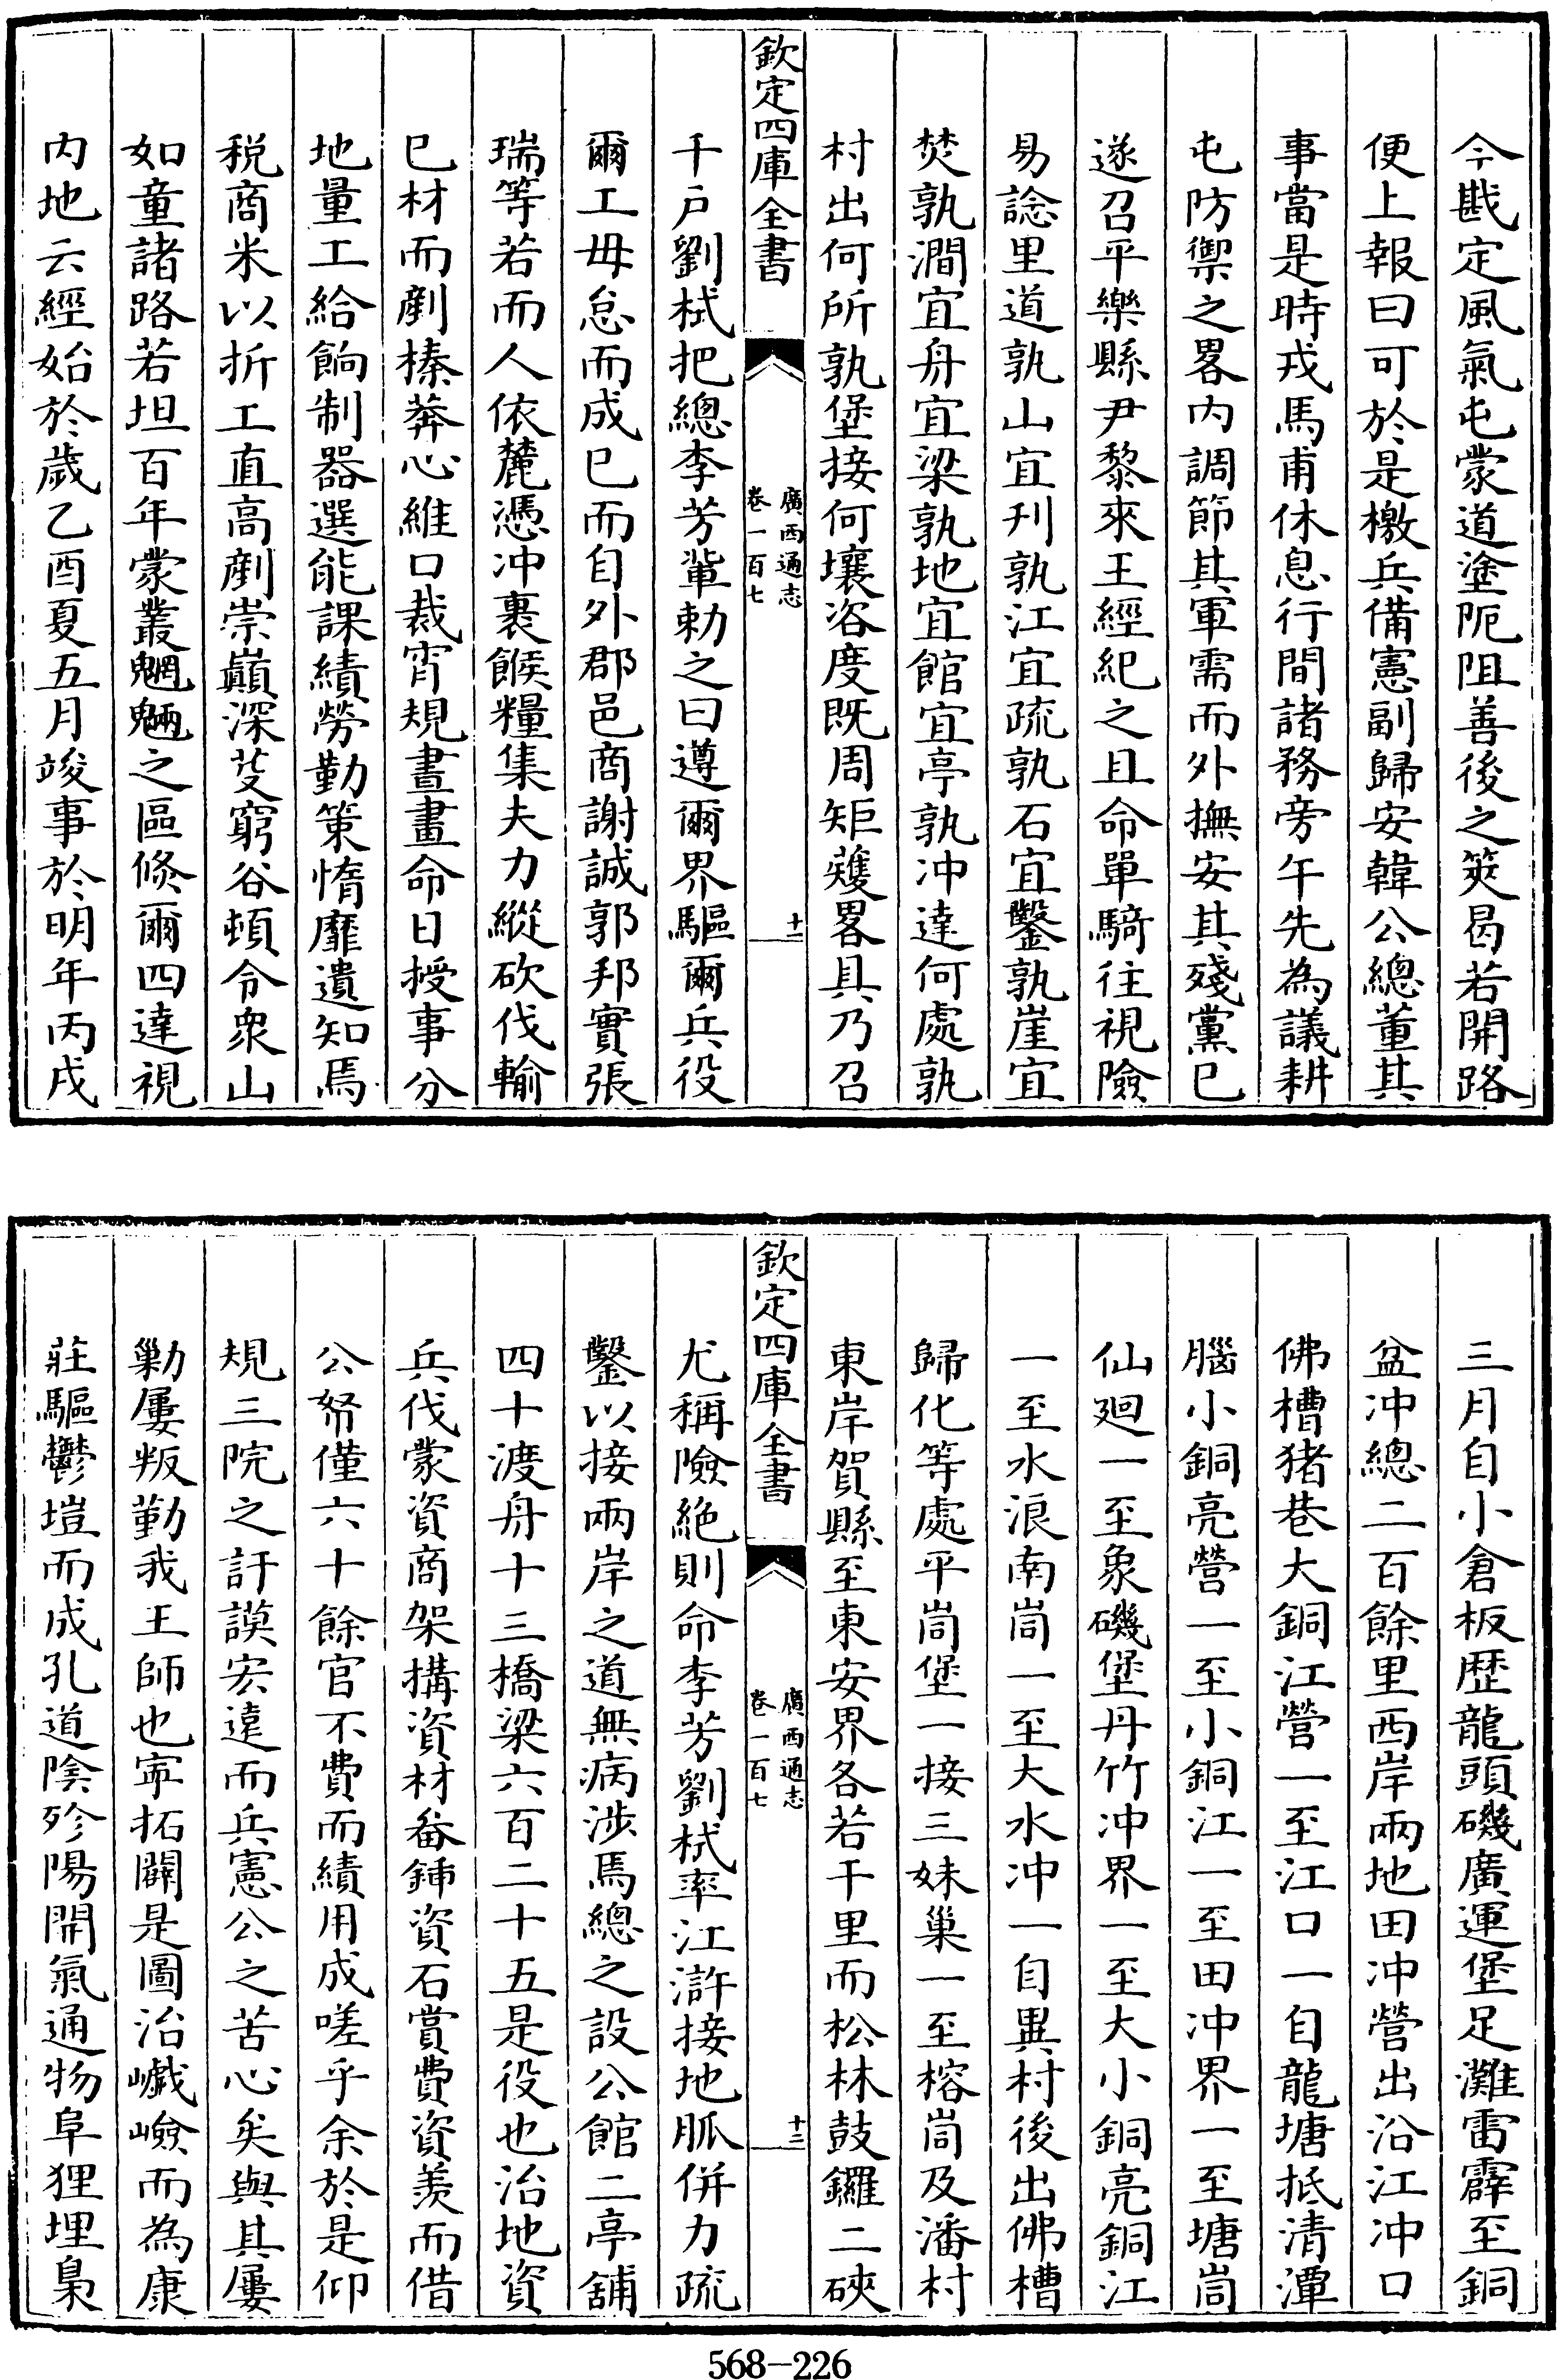 今戡定風氣屯蒙道塗阨阻善後之筴曷若開路
便上報曰可於是檄兵備憲副歸安韓公總董其
事當是時戎馬甫休息行間諸務旁午先為議耕
屯防禦之畧内調節其軍需而外撫安其殘黨已
遂召平樂縣尹黎來王經紀之且命單騎往視險
易諗里道孰山宜刋孰江宜疏孰石宜鑿孰崖宜
焚孰澗宜舟宜梁孰地宜館宜亭孰冲達何處孰
村出何所孰堡接何壤咨度既周矩矱畧具乃召
欽定四庫全書
廣西通志
卷一百七
十一
千戶劉栻把總李芳軰勅之曰遵爾界驅爾兵役
爾工毋怠而成已而自外郡邑商謝誠郭邦實張
瑞等若而人依麓憑冲裹餱糧集夫力縱砍伐輸
已材而剷榛莽心維口裁宵規晝畫命日授事分
地量工給餉制器選能課績勞勤策惰靡遺知焉
税商米以折工直高剷崇巔深芟窮谷頓令衆山
如童諸路若坦百年蒙叢魍魎之區倐爾四達視
内地云經始於歲乙酉夏五月竣事於明年丙戌
三月自小倉板歴龍頭磯廣運堡足灘雷霹至銅
盆冲總二百餘里西岸兩地田冲營出沿江冲口
佛槽猪巷大銅江營一至江口一自龍塘抵清潭
腦小銅亮營一至小銅江一至田冲界一至塘峝
仙廻一至象磯堡丹竹冲界一至大小銅亮銅江
一至水浪南峝一至大水冲一自異村後出佛槽
歸化等處平峝堡一接三妹巢一至榕峝及潘村
東岸賀縣至東安界各若干里而松林鼓鑼二硤
欽定四庫全書
廣西通志
卷一百七
十二
尤稱險絶則命李芳劉栻率江滸接地脈併力疏
鑿以接兩岸之道無病涉焉總之設公館二亭舖
四十渡舟十三橋梁六百二十五是役也治地資
兵伐蒙資商架搆資材畚鍤資石賞費資羨而借
公帑僅六十餘官不費而績用成嗟乎余於是仰
規三院之訏謨宏遠而兵憲公之苦心矣與其屢
勦屢叛勤我王師也寧拓闢是圖治巇嶮而為康
莊驅鬱塏而成孔道陰殄陽開氣通物阜狸埋梟
568—226